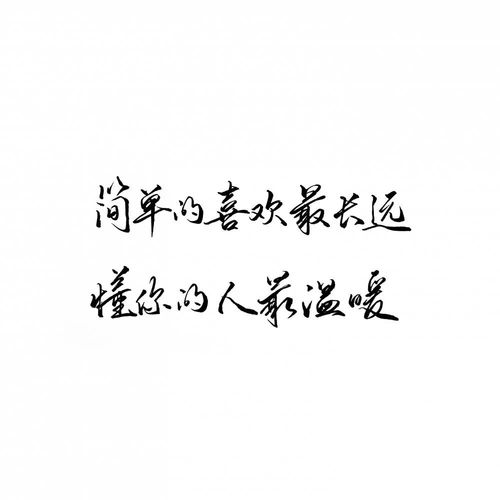 简单的喜欢最长远
懂你的人最温暖